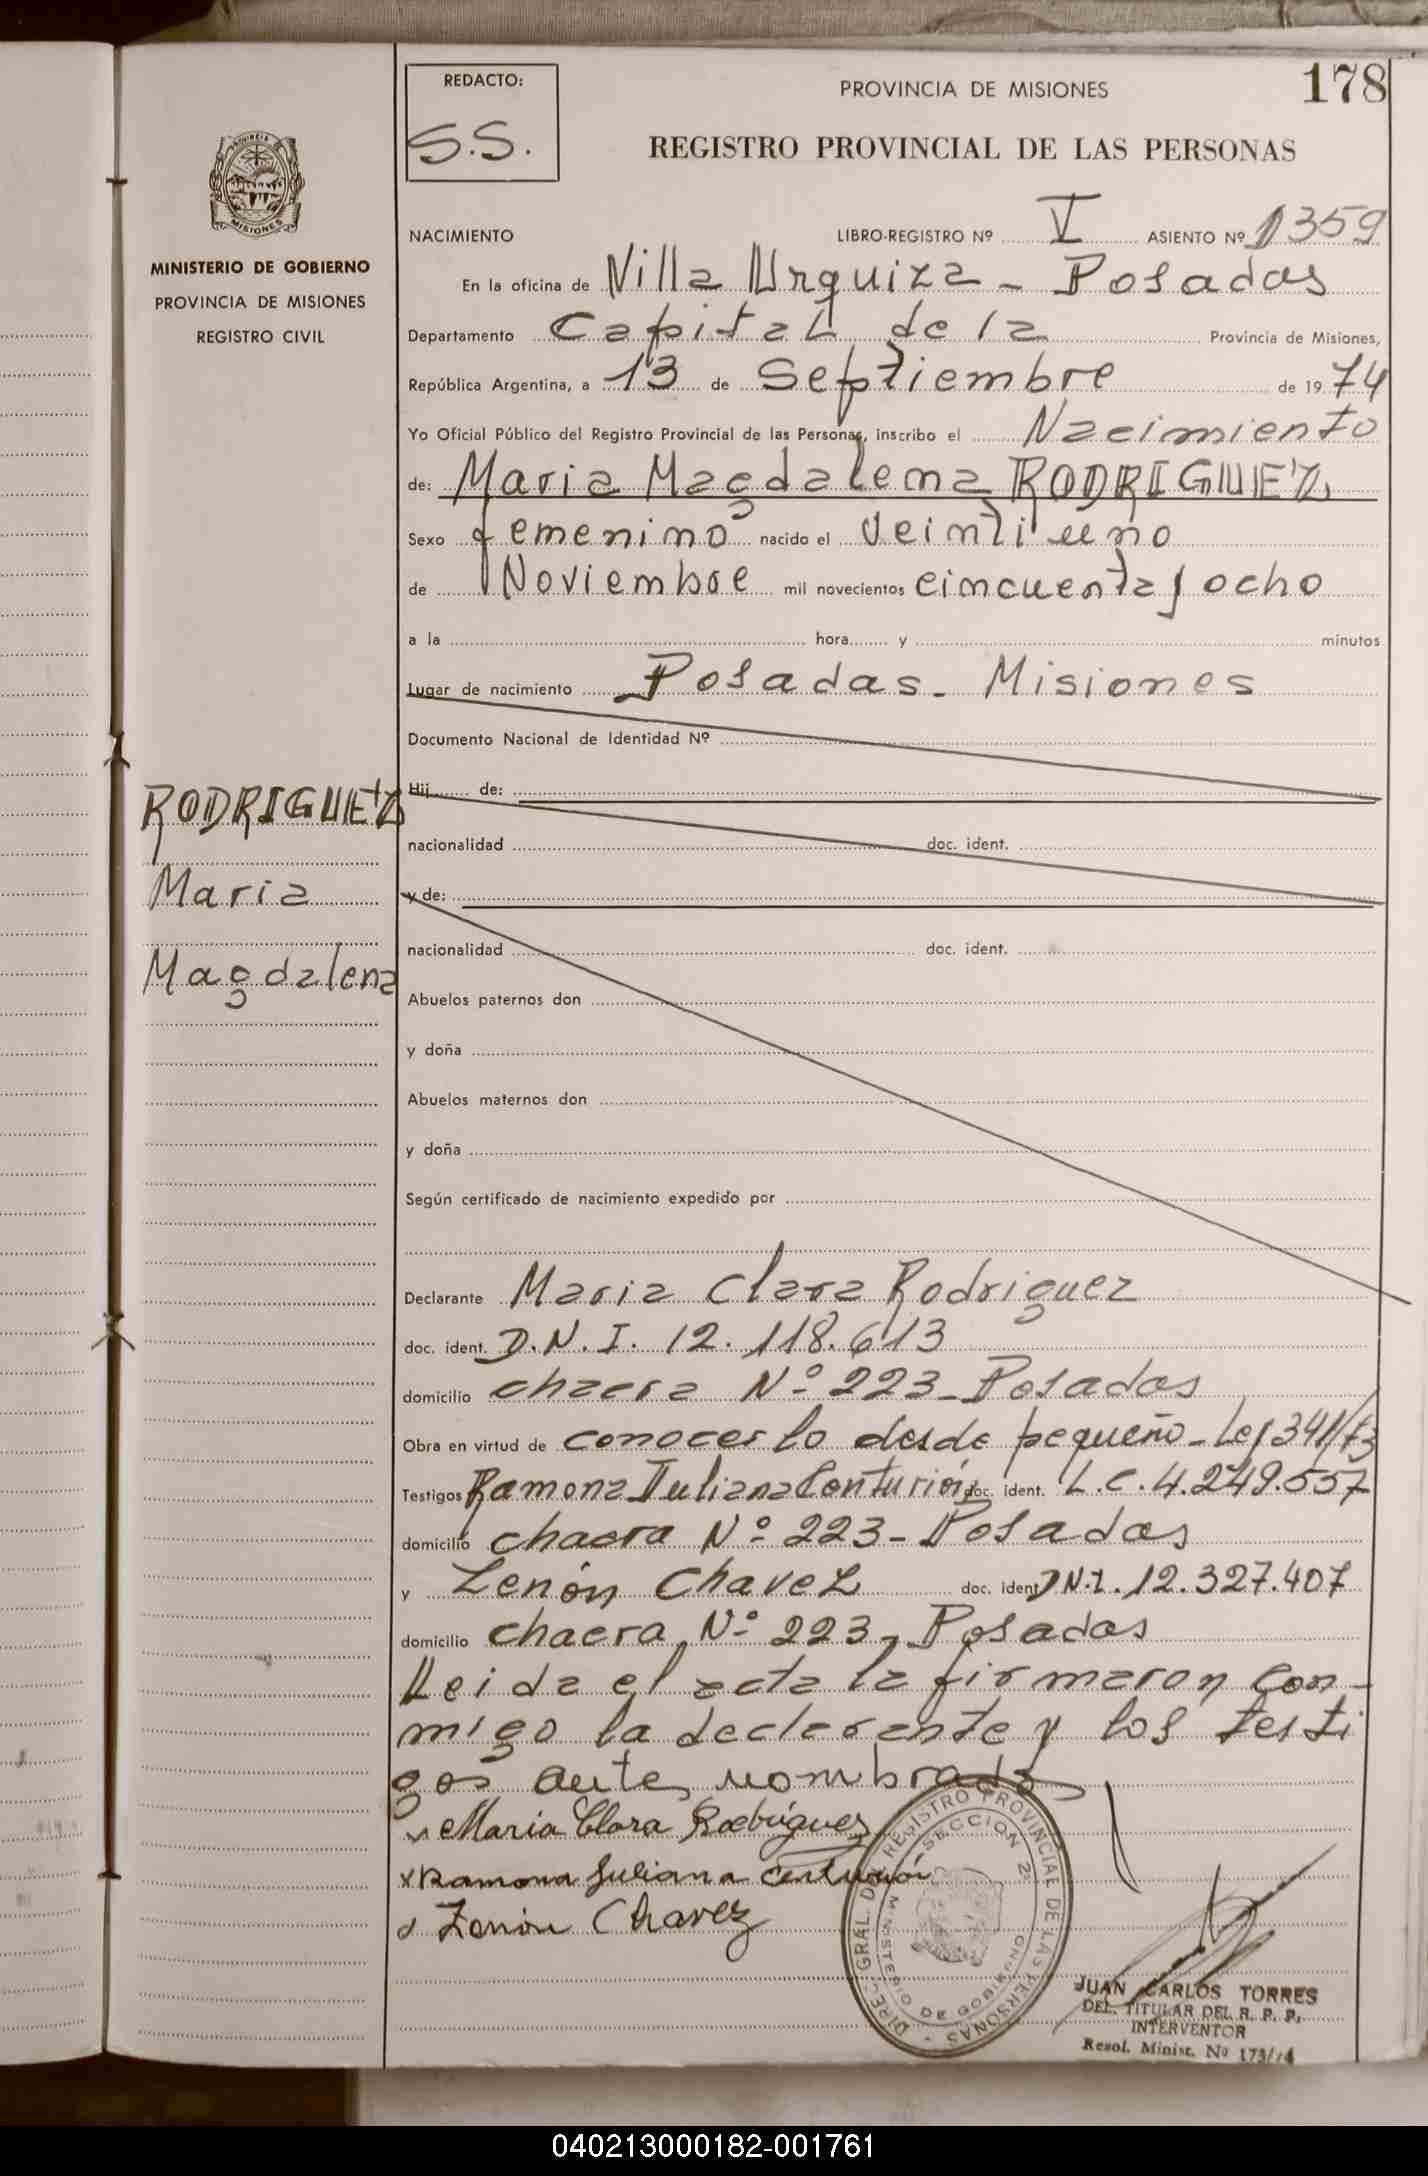 REDACTO:
S.S.
PROVINCIA DE MISIONES
178
REGISTRO PROVINCIAL DE LAS PERSONAS
PROVINCIA
MISIONES
MINISTERIO DE GOBIERNO
PROVINCIA DE MISIONES
REGISTRO CIVIL
NACIMIENTO LIBRO-REGISTRO Nº V ASIENTO Nº 1359
En la oficina de Villa Urquiza - Posadas
Departamento Capital de la Provincia de Misiones,
República Argentina, a 13 de Septiembre de 1974
Yo Oficial Público del Registro Provincial de las Personas, inscribo el Nacimiento
de: Maria Magdalena RODRIGUEZ
Sexo femenino nacido el veintiuno
de Noviembre mil novecientos cincuenta y ocho
a la hora y minutos
Lugar de nacimiento Posadas - Misiones
Documento Nacional de Identidad Nº
Hij de:
nacionalidad doc. ident.
y de:
nacionalidad doc. ident.
Abuelos paternos don
y doña
Abuelos maternos don
y doña
Según certificado de nacimiento expedido por
RODRIGUEZ
Maria
Magdalena
Declarante Maria Clara Rodriguez
doc. ident. D.N.I. 12.118.613
domicilio chacra Nº 223 - Posadas
Obra en virtud de conocerlo desde pequeño - Ley 341/73
Testigos Ramona Juliana Centurión doc. ident. L.C. 4.249.557
domicilio chacra Nº 223 - Posadas
y Zenón Chavez doc. ident. D.N.I. 12.327.407
domicilio chacra Nº 223 - Posadas
Leida el acta la firmaron con-
migo la declarante y los testi
gos antes nombrados
Maria Clara Rodriguez
x Ramona Juliana Centurión
Zenón Chavez
DIREC. GRAL. DEL REGISTRO PROVINCIAL DE LAS PERSONAS -
SECCION 2ª
MINISTERIO DE GOBIERNO
JUAN CARLOS TORRES
DEL. TITULAR DEL R. P. P.
INTERVENTOR
Resol. Minist. Nº 173/74
040213000182-001761